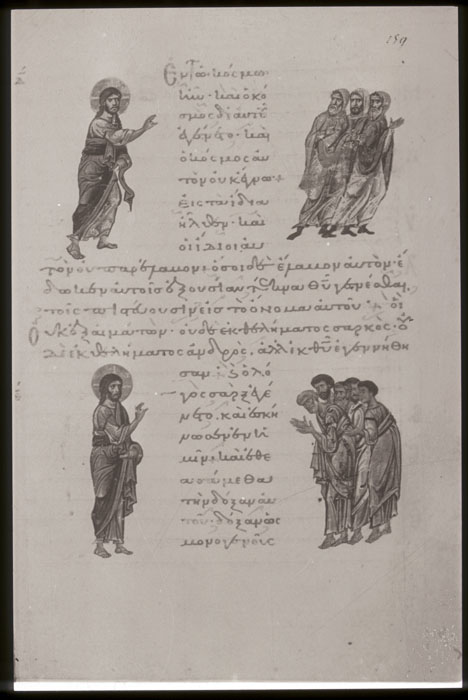 Ἐν τῶ κόσμω
ἦν· καὶ ὁ κό
σμος δι αὐτοῦ
ἐγένετο· καὶ
ὁ κόσμος αὐ
τὸν οὐκ ἔγνω·
εἰς τὰ ἴδια
ἦλθεν· καὶ
οἱ ἴδιοι αὐ
τὸν οὐ παρέλαβον· ὅσοι δὲ ἔλαβον αὐτὸν· ἔ
δωκεν αὐτοῖς ἐξουσίαν τέκνα θῦ γενέσθαι·
τοῖς πιστεύουσιν εἰς τὸ ὄνομα αὐτοῦ· οἱ
οὐκ ἐξ αἱμάτων· οὐδὲ ἐκ θελήματος σαρκὸς· οὐ
δὲ ἐκ θελήματος ἀνδρὸς, ἀλλ ἐκ θῦ ἐγεννήθη
σαν· καὶ ὁ λό
γος σὰρξ ἐγέ
νετο. καὶ ἐσκή
νωσεν ἐν ἡ
μῖν, καὶ ἐθε
ασάμεθα
τὴν δόξαν αὐ
τοῦ· δόξαν ὡς
μονογενοῦς